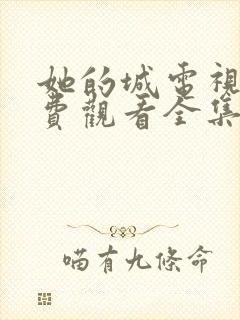 她的城電視
費觀看全集
喵有九條命